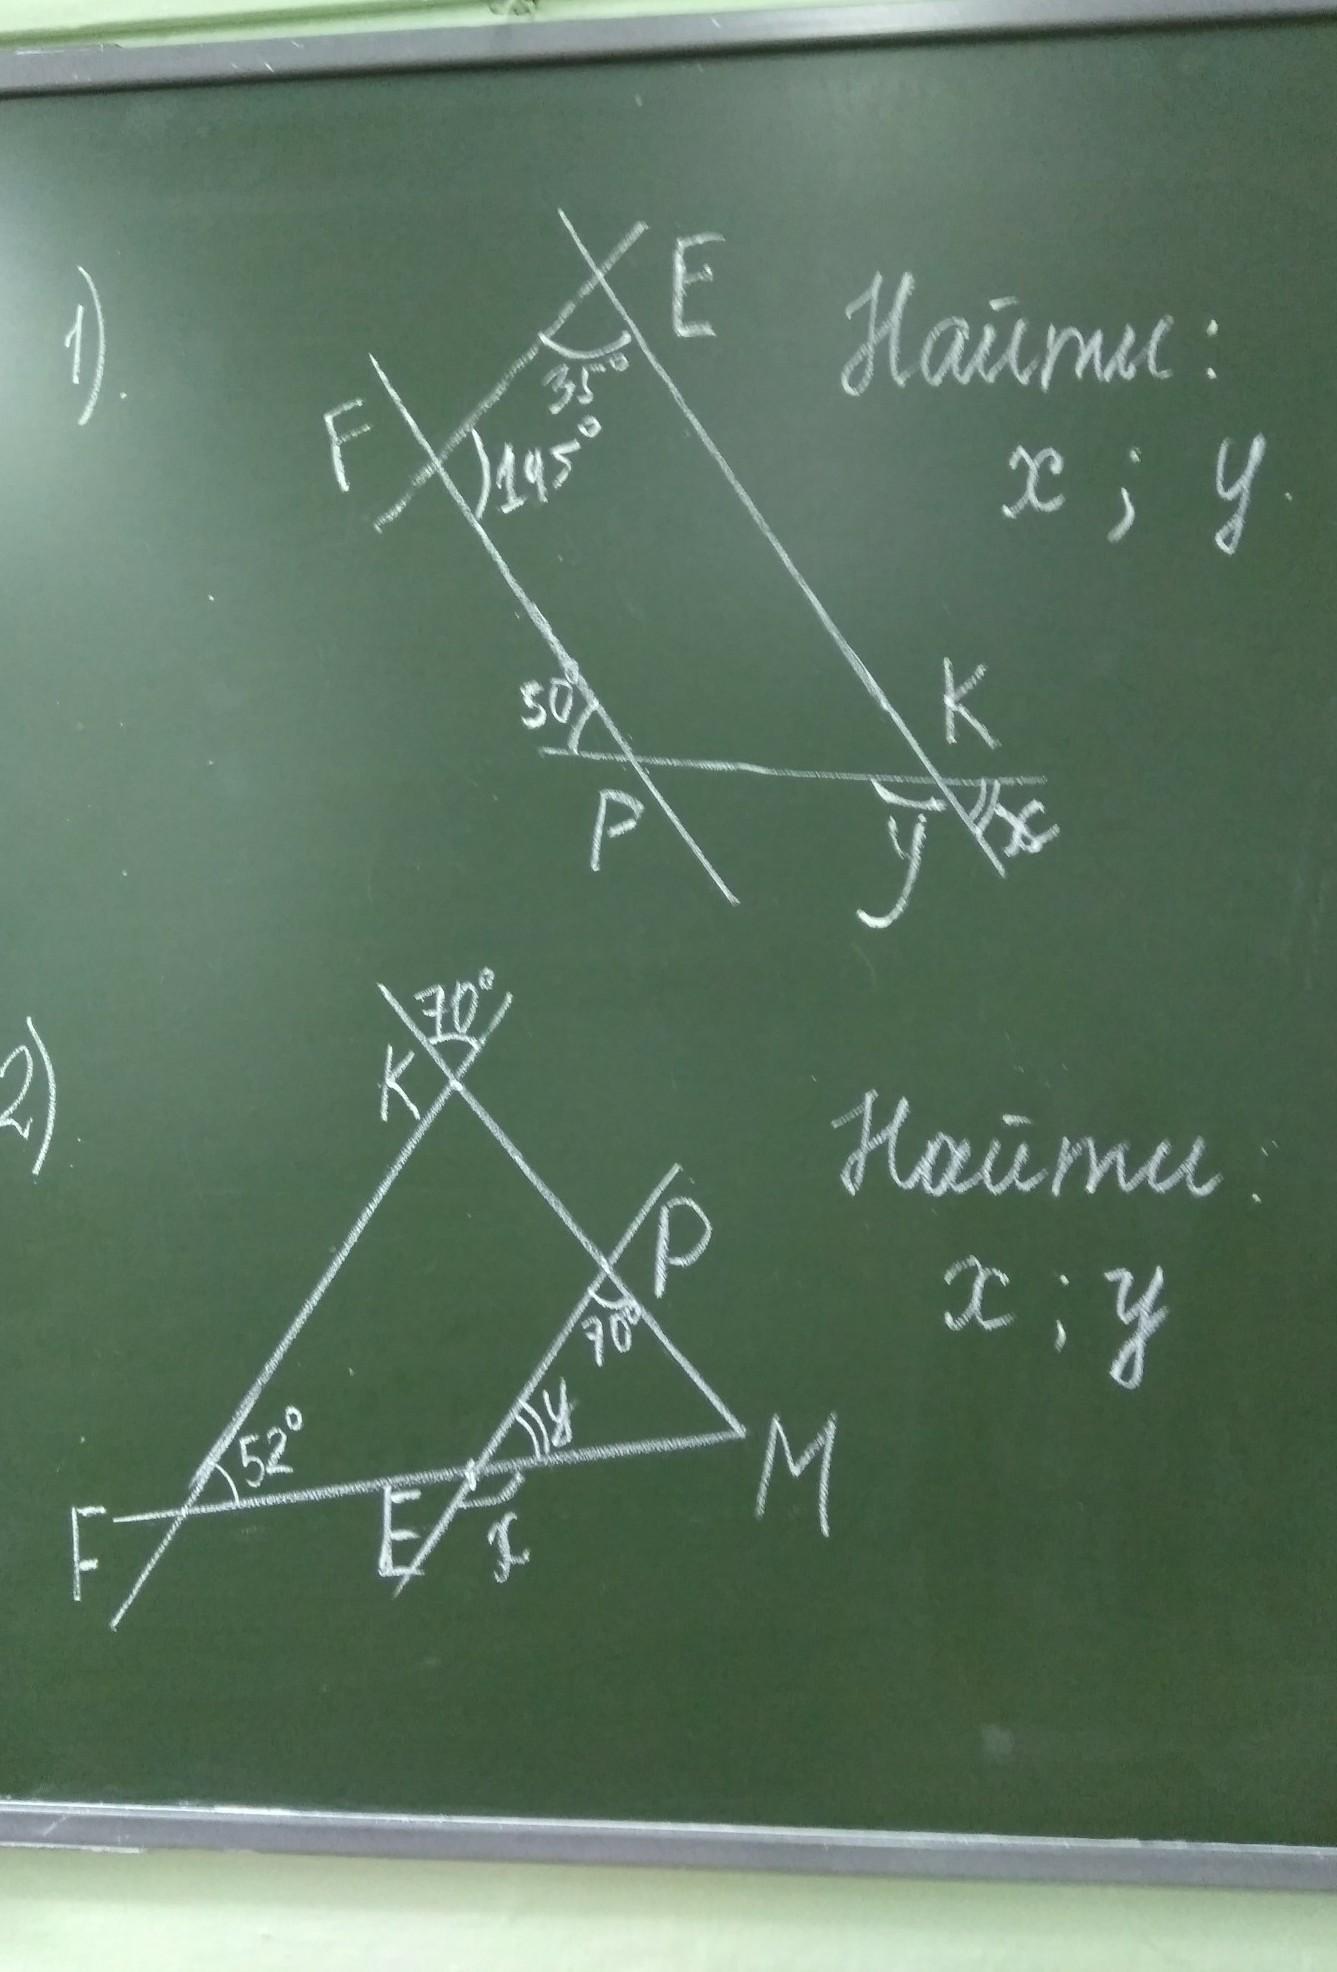 1)
E
Найти:
35°
F
145°
x ; y
50°
K
P
y
x
2)
70°
K
Найти
P
x ; y
70°
y
52°
M
F
E
x